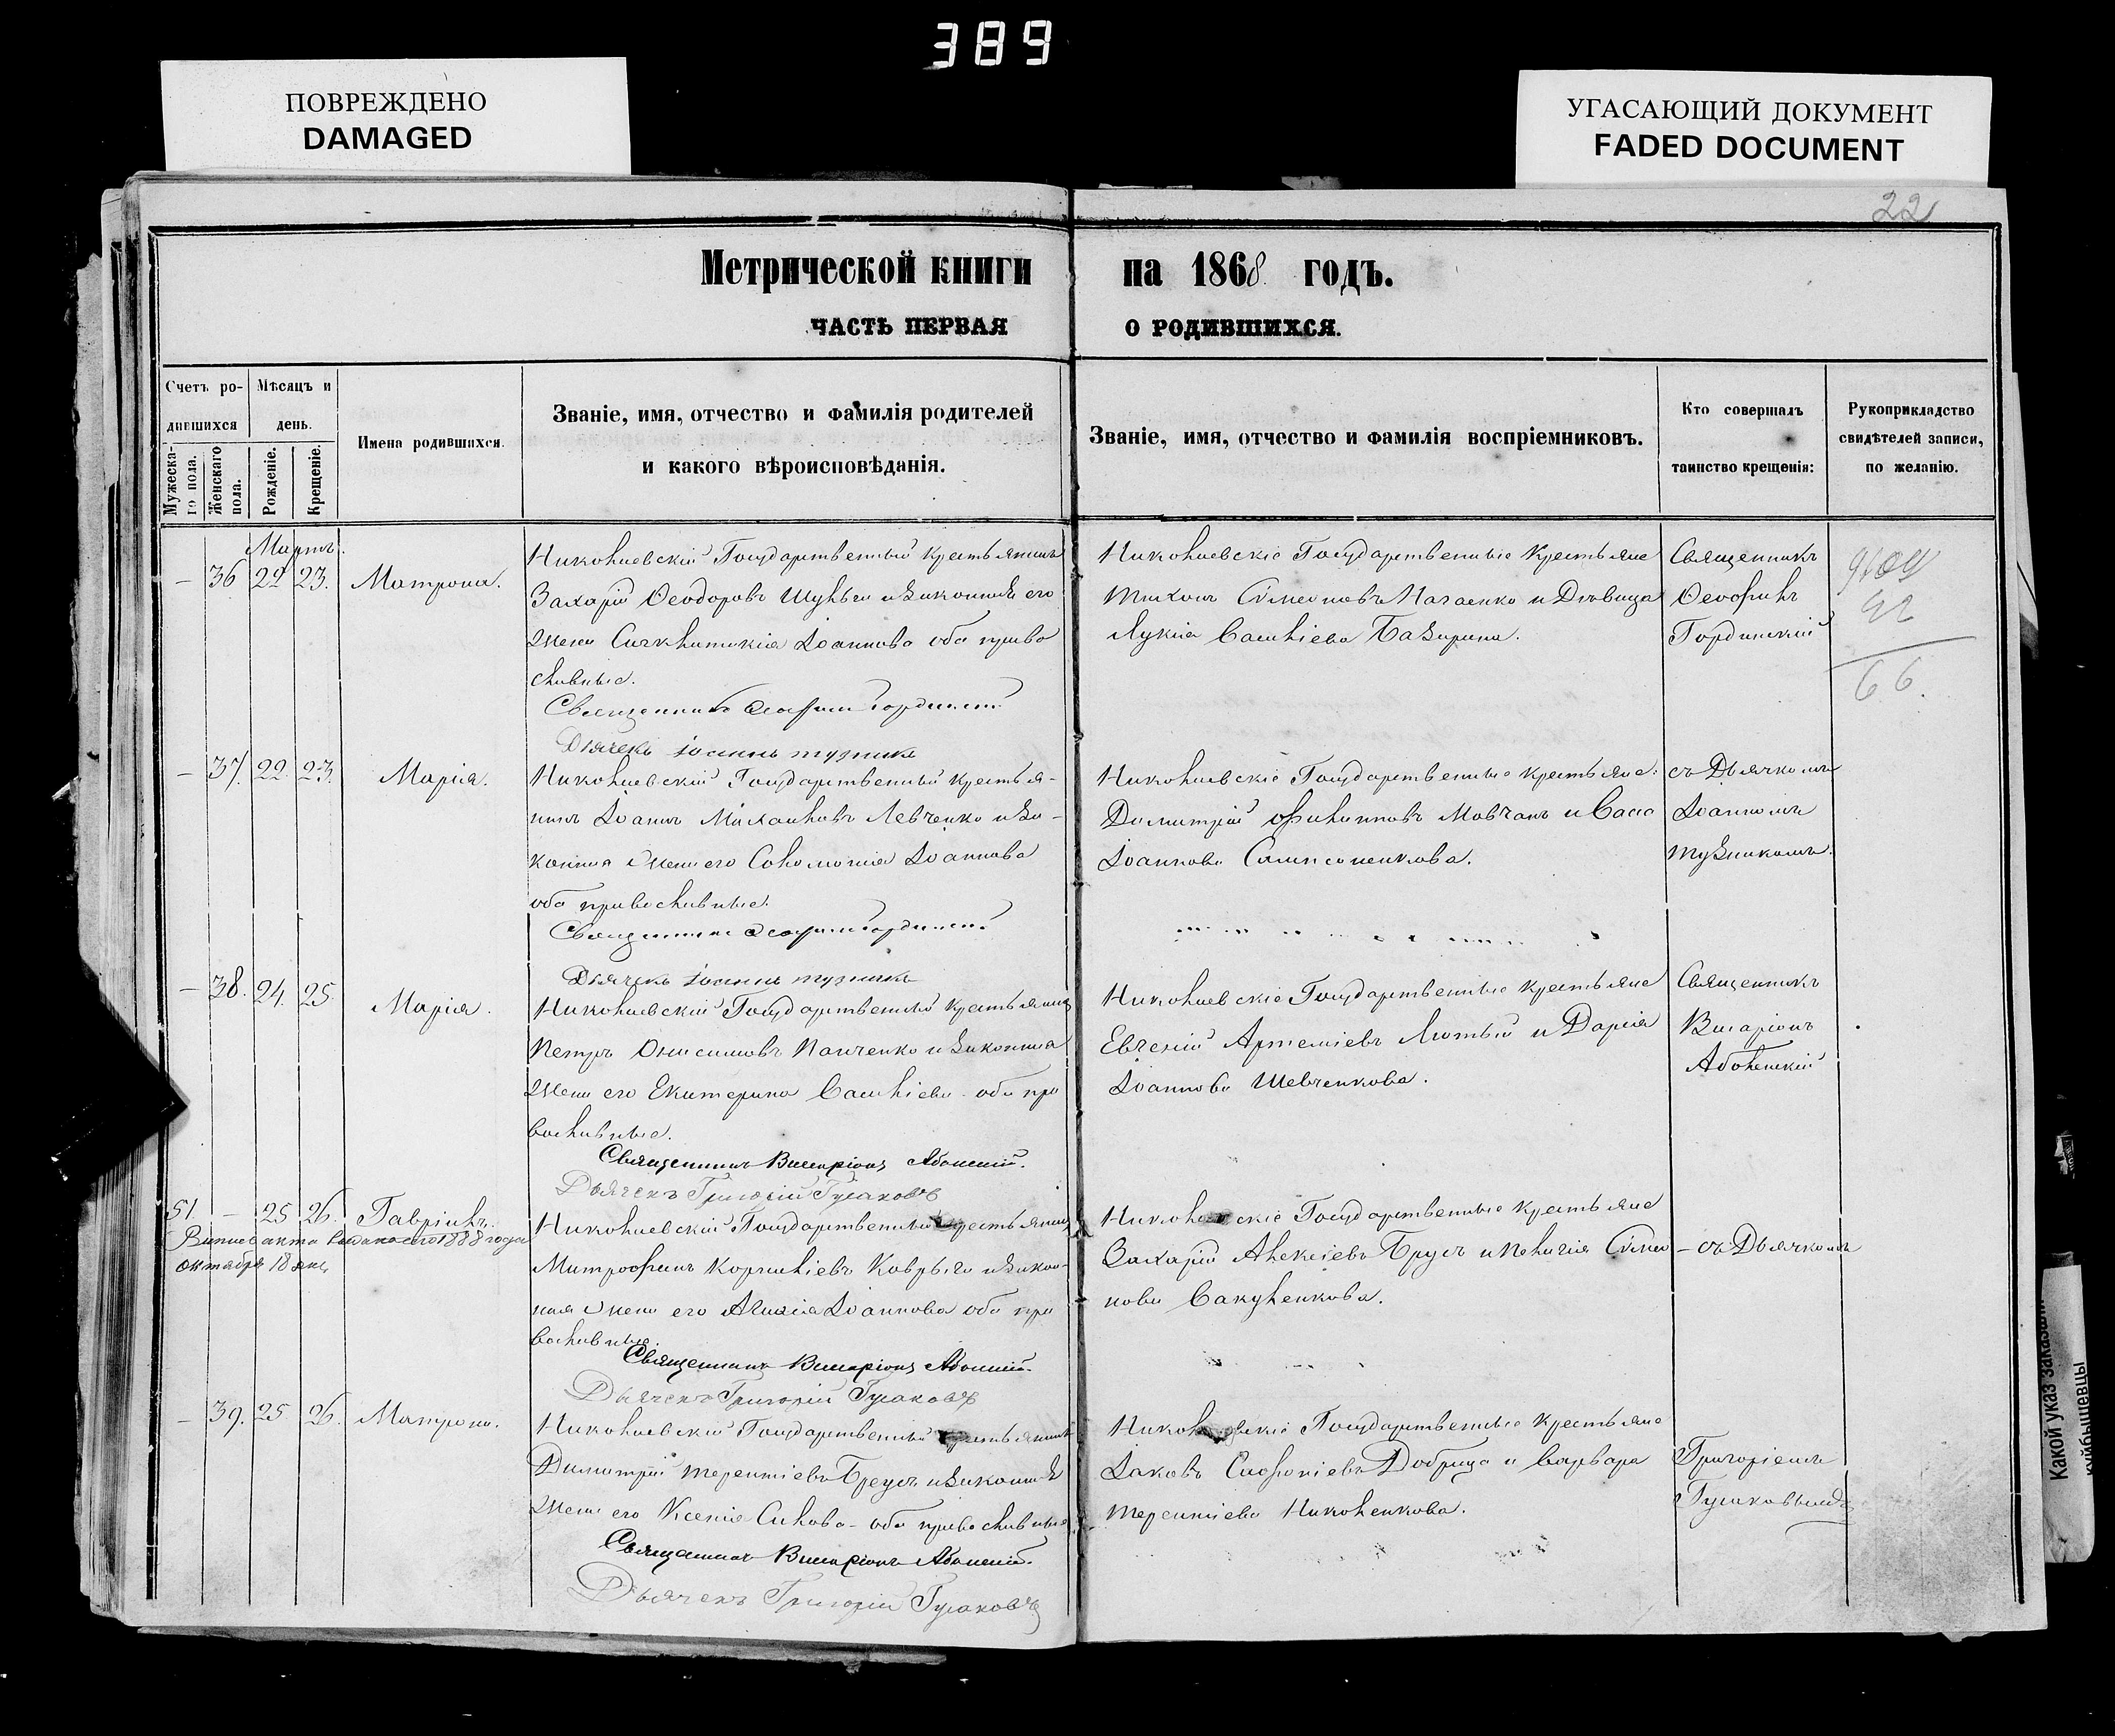 389
ПОВРЕЖДЕНО
DAMAGED
УГАСАЮЩИЙ ДОКУМЕНТ
FADED DOCUMENT
22
Метрической книги на 1868 годъ.
ЧАСТЬ ПЕРВАЯ О РОДИВШИХСЯ.
Счетъ ро-
дившихся
Мужеска-
го пола.
Женскаго
пола.
Мѣсяцъ и
день.
Рожденіе.
Крещеніе.
Имена родившихся.
Званіе, имя, отчество и фамилія родителей
и какого вѣроисповѣданія.
Званіе, имя, отчество и фамилія воспріемниковъ.
Кто совершалъ
таинство крещенія:
Рукоприкладство
свидѣтелей записи,
по желанію.
Мартъ.
— 36 22 23. Матрона.
Николаевскій Государственный крестьянинъ
Захарій Ѳеодоровъ и законная его
жена Іоаннова оба право
славные.
Священникъ Ѳеофилъ Гординскій
Дьячекъ Іоаннъ Тузникъ
Николаевскіе Государственные крестьяне
Тихонъ Симеоновъ Начаенко и Дѣвица
Лукія Василіева Базирина.
Священникъ
Ѳеофилъ
Гординскій
42
66.
— 37. 22. 23. Марія.
Николаевскій Государственный крестья-
нинъ Іоаннъ Михаиловъ Левченко и за-
конная жена его Соломонія Іоаннова
оба православные.
Священникъ Ѳеофилъ Гординскій
Дьячекъ Іоаннъ Тузникъ
Николаевскіе Государственные крестьяне:
Димитрій Филипповъ Мовчанъ и Васса
Іоаннова Самисоненкова.
съ Дьячкомъ
Іоанномъ
Тузникомъ.
— 38. 24. 25. Марія.
Николаевскій Государственный крестьянинъ
Петръ Онисимовъ Панченко и законная
жена его Екатерина Василіева оба пра
вославные.
Священникъ Виссаріонъ
Дьячекъ Григорій Гусаковъ
Николаевскіе Государственные крестьяне
Евгеній Артеміевъ Лютый и Дарія
Іоаннова Шевченкова.
Священникъ
Висаріонъ
51 — 25 26. Гавріилъ.
1888 года
октября 18 дня
Николаевскій Государственный крестьянинъ
Митрофанъ Корниліевъ Коврыга и закон-
ная жена его Іоаннова оба пра
вославные.
Священникъ Виссаріонъ
Дьячекъ Григорій Гусаковъ
Николаевскіе Государственные крестьяне
Захарій Алексіевъ Брусъ и Пелагія Симео
нова Вакуленкова.
— съ Дьячкомъ
— 39. 25 26. Матрона.
Николаевскій Государственный крестьянинъ
Димитрій Терентіевъ Бреусъ и законная
жена его Ксенія Силова — оба православные
Священникъ Виссаріонъ
Дьячекъ Григорій Гусаковъ
Николаевскіе Государственные крестьяне
Іаковъ Софоніевъ Добрица и Варвара
Терентіева Николенкова.
Григоріемъ
Гусаковымъ
Какой указ заказали
куйбышевцы